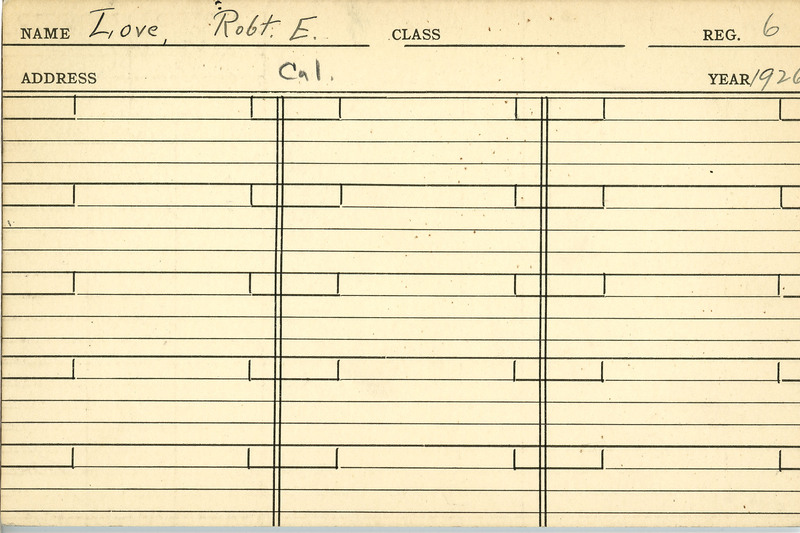 NAME Love, Robt. E. CLASS REG. 6
ADDRESS Cal. YEAR 1926